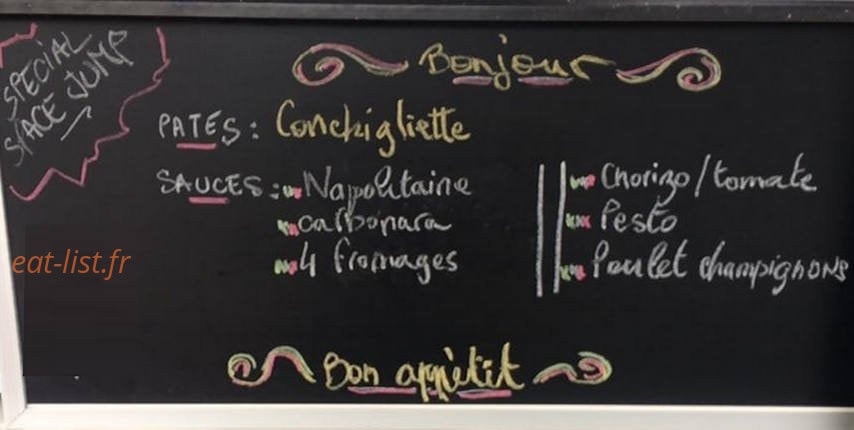 SPECIAL
SPACE JUMP
Bonjour
PATES : Conchigliette
SAUCES : Napolitaine
carbonara
4 fromages
Chorizo/tomate
Pesto
Poulet champignons
eat-list.fr
Bon appétit